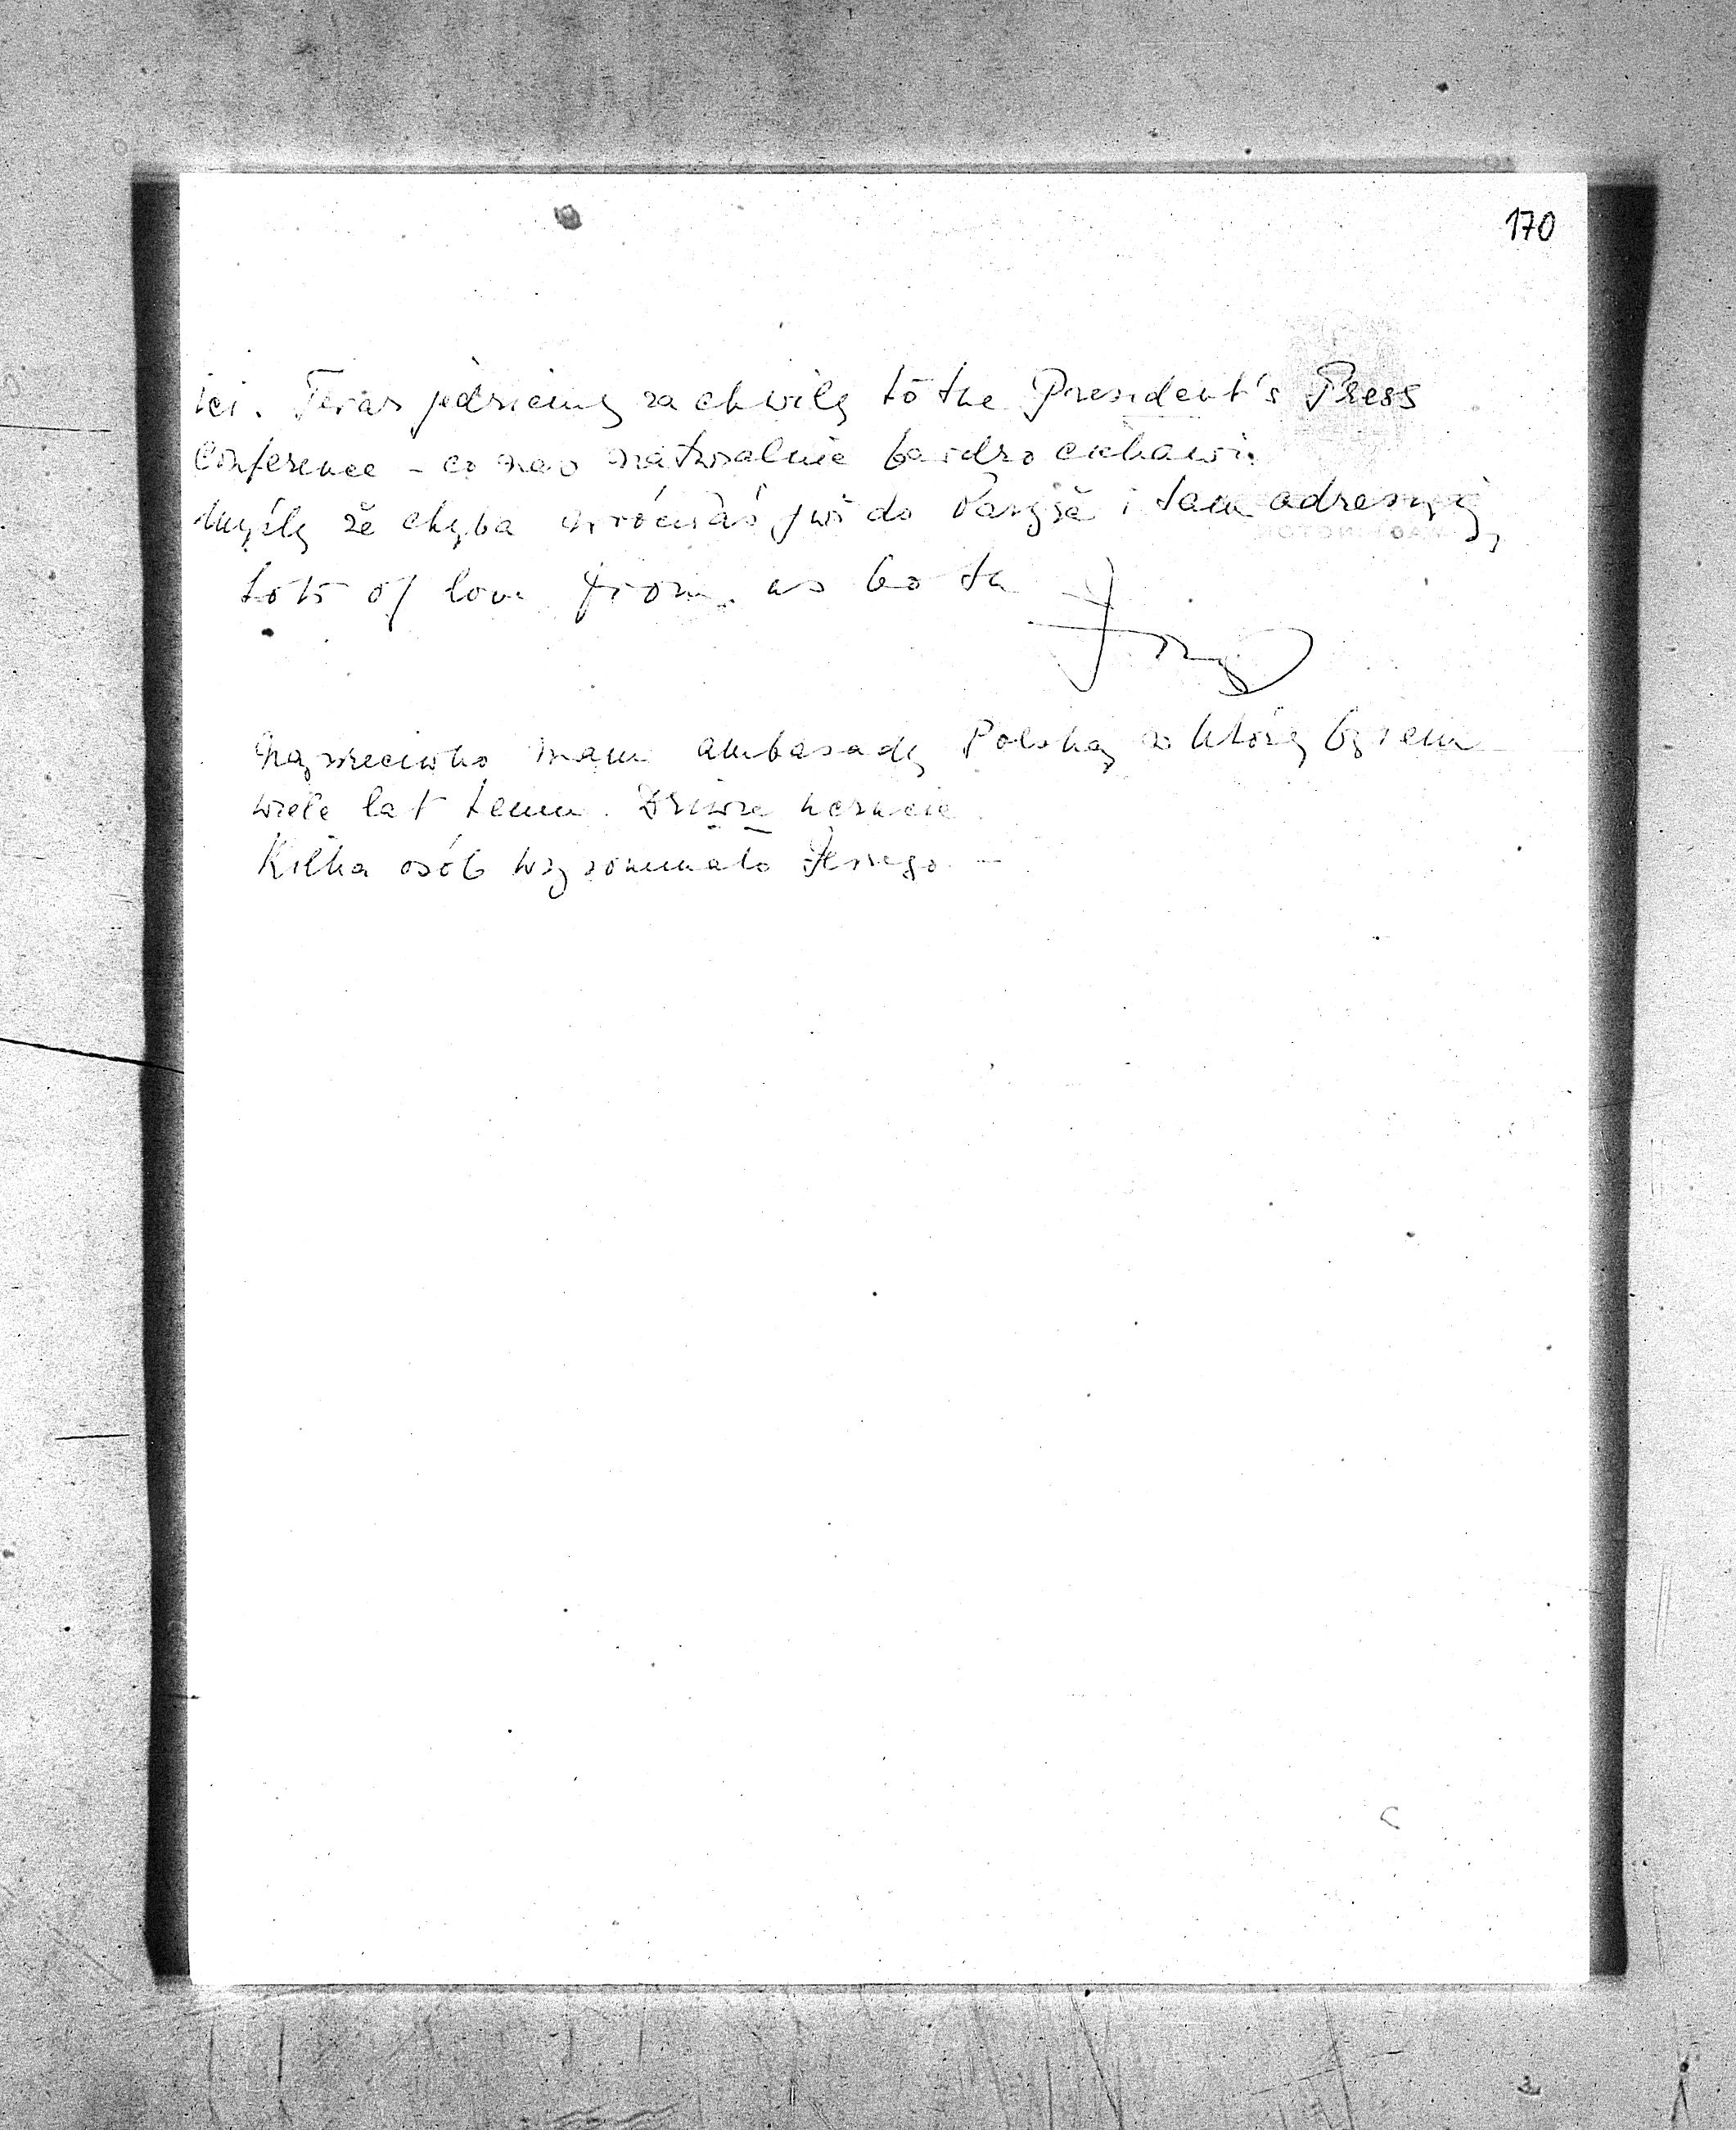 170
ici. Teraz jedziemy za chwilę to the President's Press
Conference – co nas naturalnie bardzo ciekawi.
Myślę że chyba wróciłaś już do Paryża i tam adresuję,
Lots of love from us both
Naprzeciwko mam ambasadę Polską w której byłem
wiele lat temu. Dziwne uczucie.
Kilka osób wspominało Jerzego. —